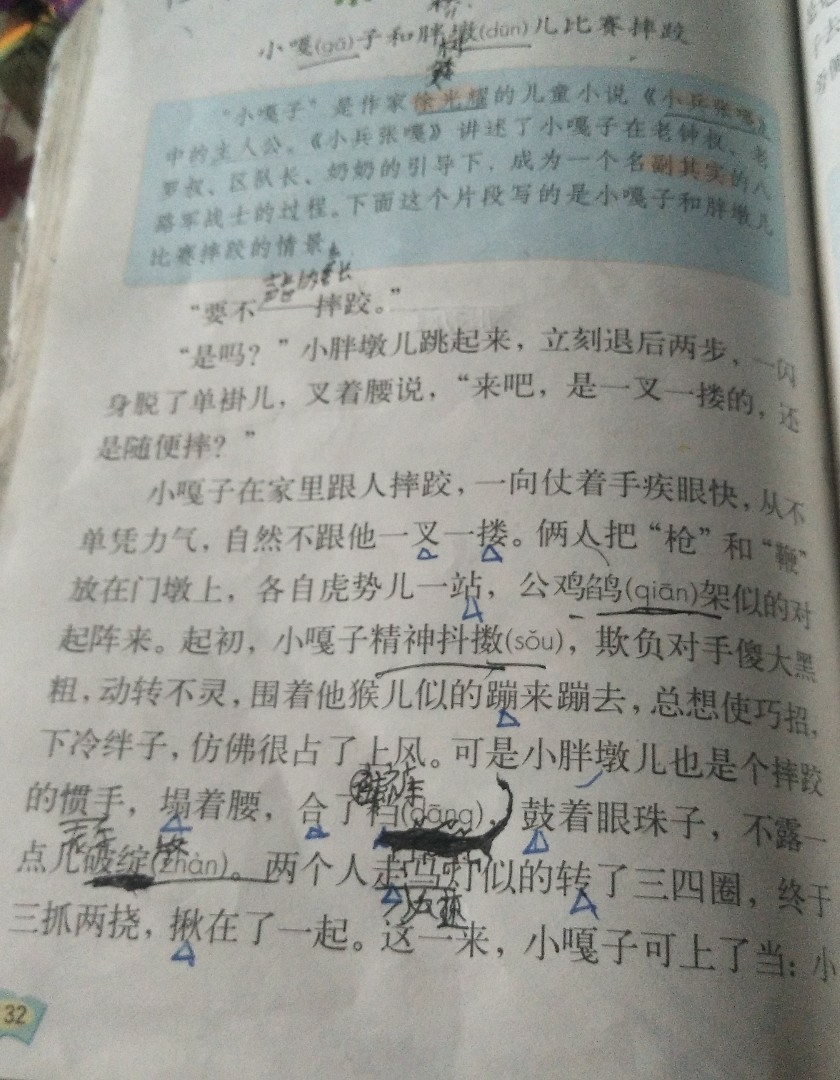 小嘎(gā)子和胖墩(dūn)儿比赛摔跤
“小嘎子”是作家徐光耀的儿童小说《小兵张嘎》
中的主人公。《小兵张嘎》讲述了小嘎子在老钟叔、老
罗叔、区队长、奶奶的引导下，成为一个名副其实的八
路军战士的过程。下面这个片段写的是小嘎子和胖墩儿
比赛摔跤的情景。
声音的延长
“要不——摔跤。”
“是吗？”小胖墩儿跳起来，立刻退后两步，一闪
身脱了单褂儿，叉着腰说，“来吧，是一叉一搂的，还
是随便摔？”
小嘎子在家里跟人摔跤，一向仗着手疾眼快，从不
单凭力气，自然不跟他一叉一搂。俩人把“枪”和“鞭”
放在门墩上，各自虎势儿一站，公鸡鹐(qiān)架似的对
起阵来。起初，小嘎子精神抖擞(sǒu)，欺负对手傻大黑
粗，动转不灵，围着他猴儿似的蹦来蹦去，总想使巧招，
下冷绊子，仿佛很占了上风。可是小胖墩儿也是个摔跤
的惯手，塌着腰，合了裆(dāng)，鼓着眼珠子，不露一
点儿破绽(zhàn)。两个人走马灯似的转了三四圈，终于
三抓两挠，揪在了一起。这一来，小嘎子可上了当：小
32